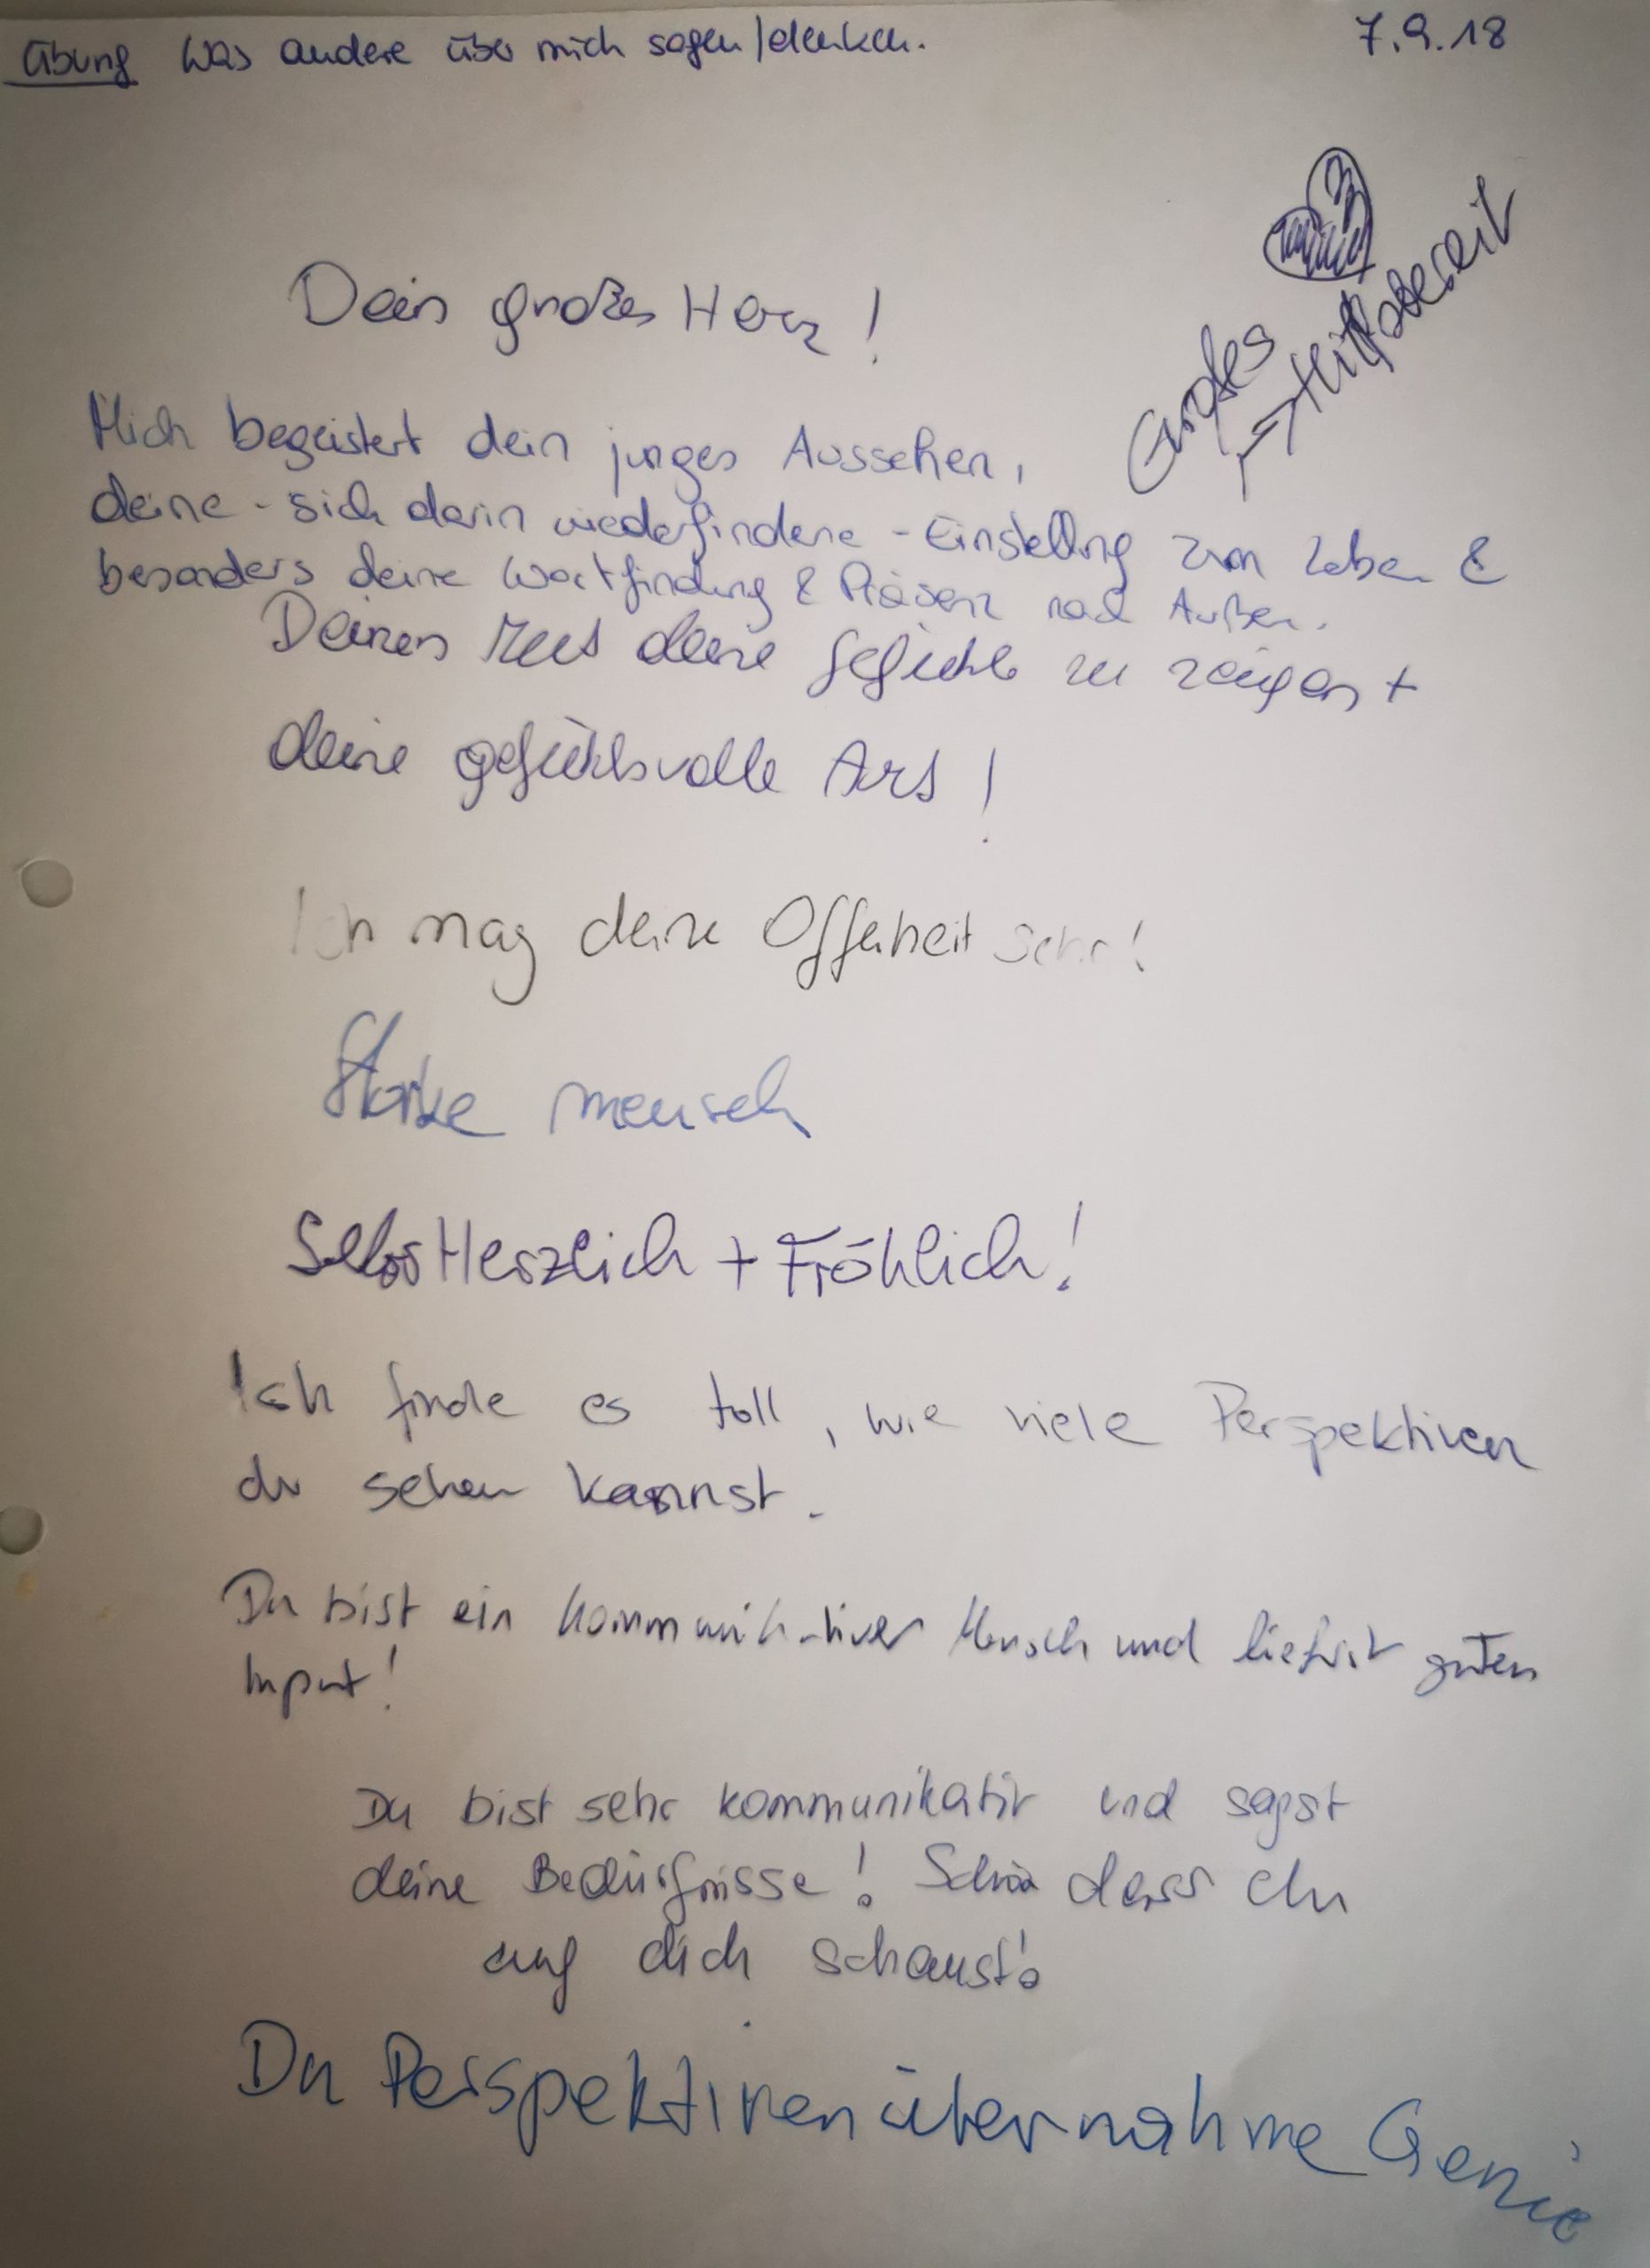 Übung Was andere über mich sagen/denken. 7.9.18
Großes
→ Hilfsbereit
Dein großes Herz!
Mich begeistert dein junges Aussehen,
deine - sich darin wiederfindene - Einstellung zum Leben &
besonders deine Wortfindung & Präsenz nach Außen.
Deinen Mut deine Gefühle zu zeigen +
deine gefühlsvolle Art!
Ich mag deine Offenheit sehr!
Starke mensch
Herzlich + Fröhlich!
Ich finde es toll, wie viele Perspektiven
du sehen kannst.
Du bist ein kommunikativer Mensch und lieferst guten
Input!
Du bist sehr kommunikativ und sagst
deine Bedürfnisse! Schön dass du
auf dich schaust!
Du Perspektivenübernahme Genie